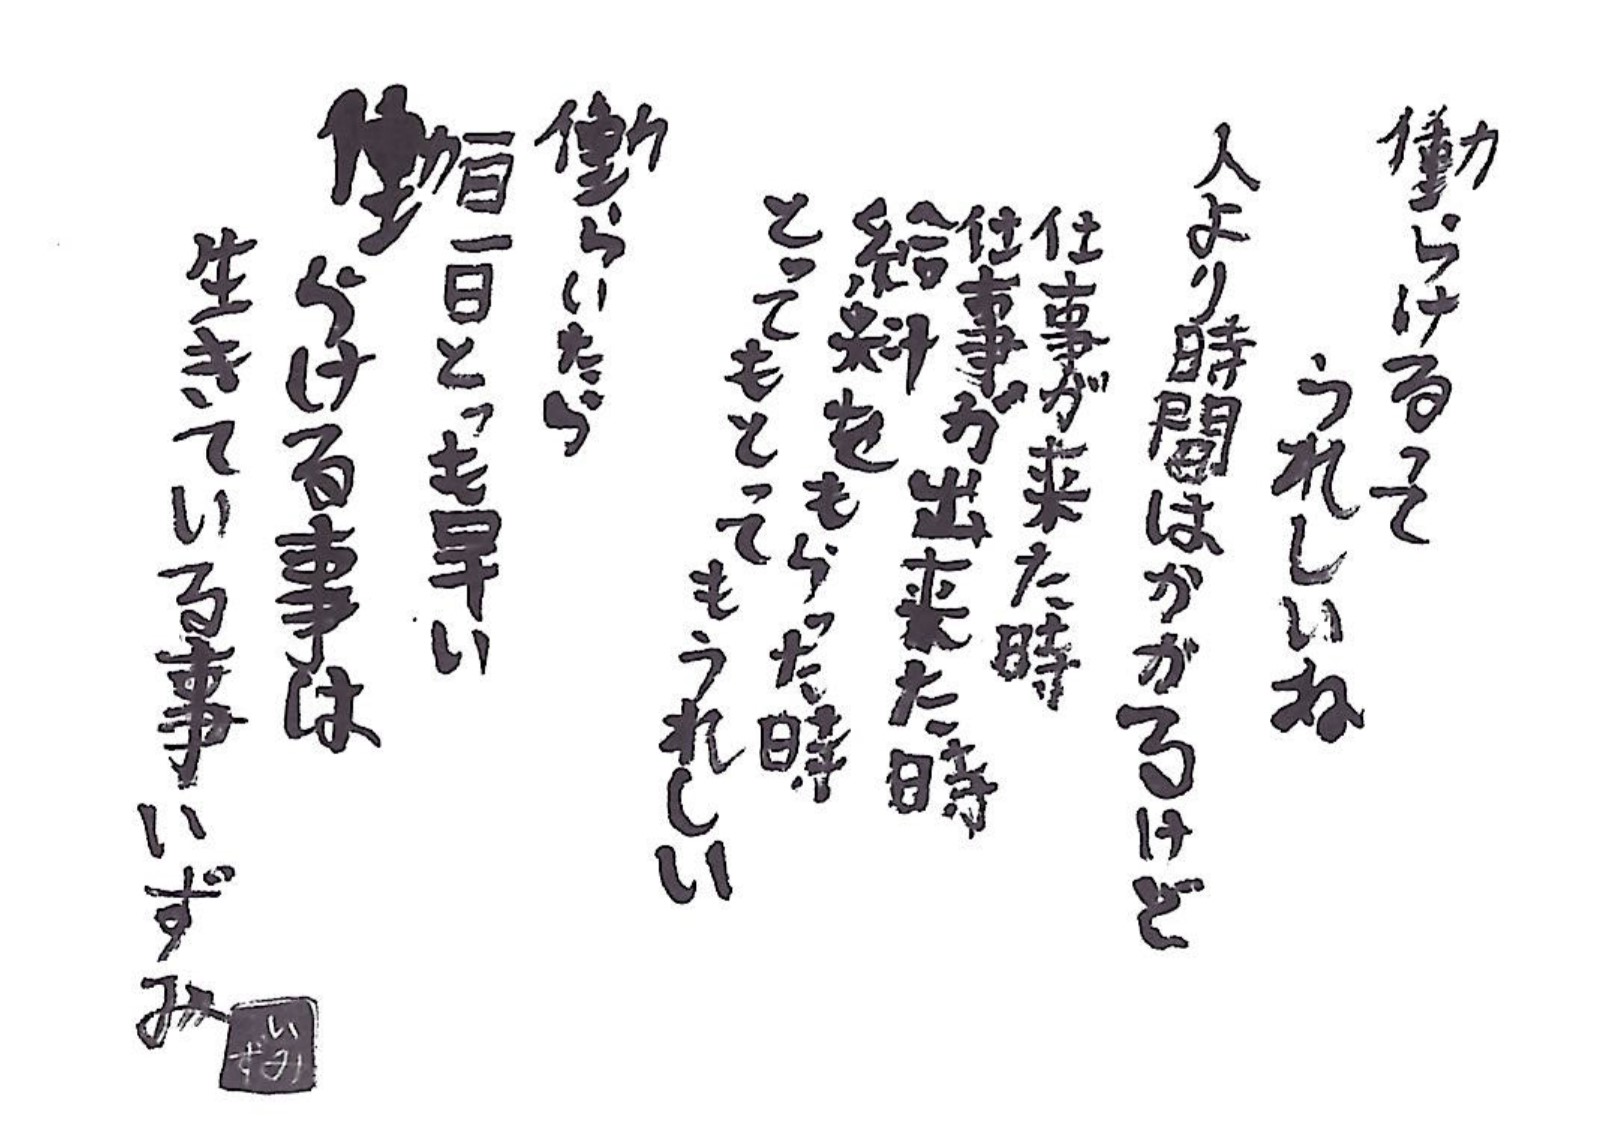 働らけるって
うれしいね
人より時間はかかるけど
仕事が来た時
仕事が出来た時
給料をもらった時
とってもとってもうれしい
働らいたら
一日一日とっも早い
働らける事は
生きている事
いずみ
いずみ